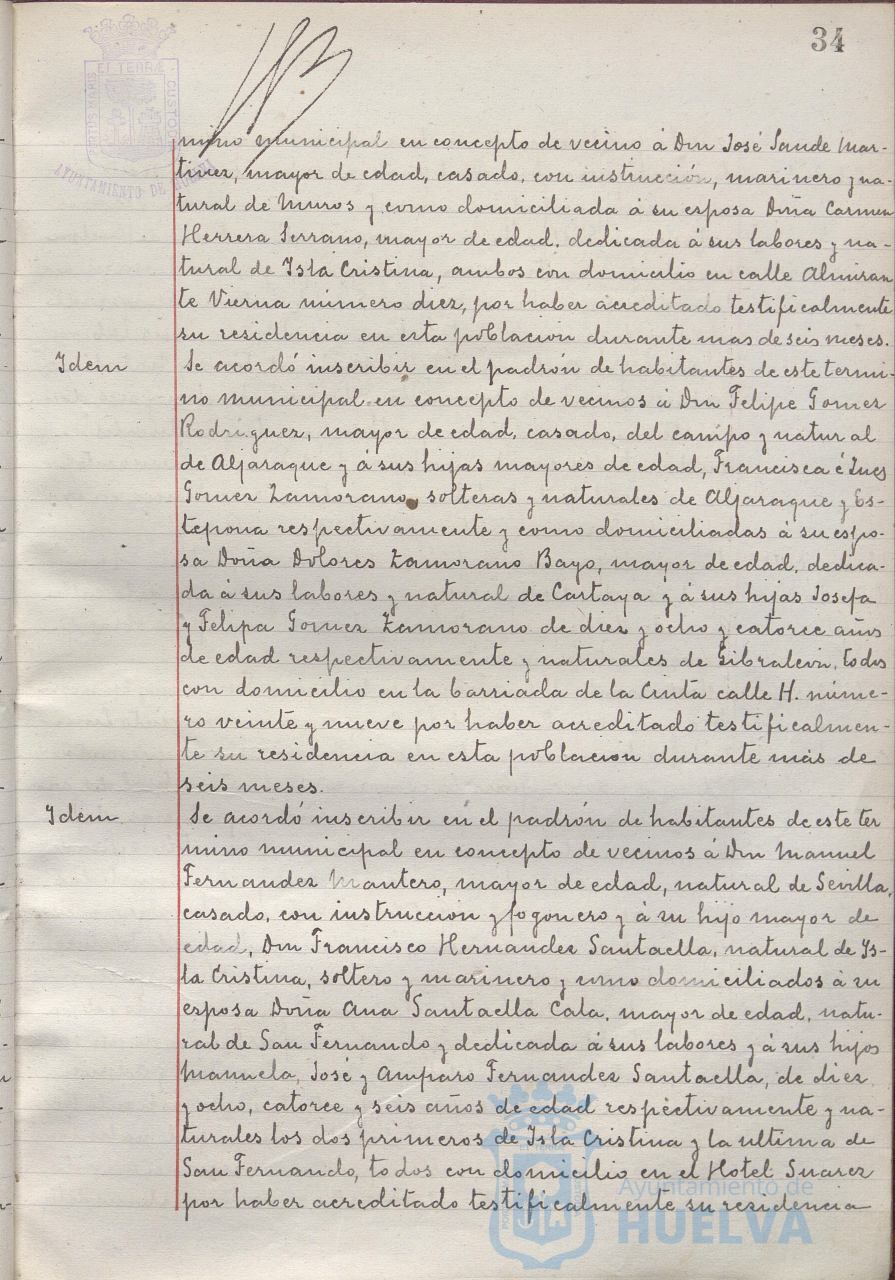 34
mino municipal en concepto de vecino á Don José Sande Mar-
tinez, mayor de edad, casado, con instrucción, marinero y na-
tural de Muros y como domiciliada á su esposa Doña Carmen
Herrera Serrano, mayor de edad, dedicada á sus labores y na-
tural de Isla Cristina, ambos con domicilio en calle Almiran
te Vierna número diez, por haber acreditado testificalmente
su residencia en esta poblacion durante mas de seis meses.
Idem
Se acordó inscribir en el padrón de habitantes de este termi-
no municipal en concepto de vecinos á Don Felipe Gomez
Rodriguez, mayor de edad, casado, del campo y natural
de Aljaraque y á sus hijas mayores de edad, Francisca é Ines
Gomez Zamorano, solteras y naturales de Aljaraque y Es-
tepona respectivamente y como domiciliadas á su espo-
sa Doña Dolores Zamorano Bayo, mayor de edad, dedica-
da á sus labores y natural de Cartaya y á sus hijas Josefa
y Felipa Gomez Zamorano de diez y ocho y catorce años
de edad respectivamente y naturales de Gibraleon, todos
con domicilio en la barriada de la Cinta calle H. núme-
ro veinte y nueve por haber acreditado testificalmen-
te su residencia en esta poblacion durante más de
seis meses.
Idem
Se acordó inscribir en el padrón de habitantes de este ter
mino municipal en concepto de vecinos á Don Manuel
Fernandez Mantero, mayor de edad, natural de Sevilla,
casado, con instruccion y fogonero y á su hijo mayor de
edad, Don Francisco Hernandez Santaella, natural de Is-
la Cristina, soltero y marinero y como domiciliados á su
esposa Doña Ana Santaella Cala, mayor de edad, natu-
ral de San Fernando y dedicada á sus labores y á sus hijos
Manuela, José y Amparo Fernandez Santaella, de diez
y ocho, catorce y seis años de edad respectivamente y na-
turales los dos primeros de Isla Cristina y la ultima de
San Fernando, todos con domicilio en el Hotel Suarez
por haber acreditado testificalmente su residencia
AYUNTAMIENTO DE HUELVA
Ayuntamiento de
HUELVA